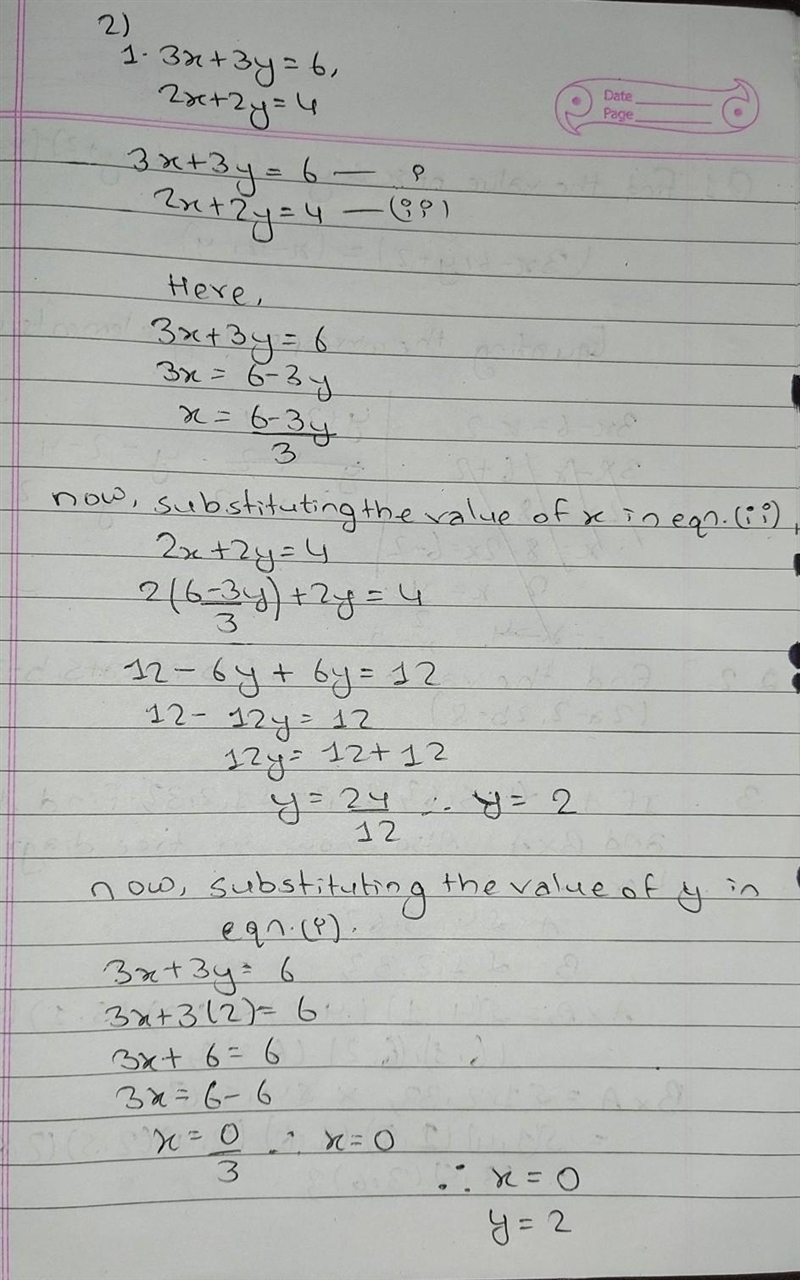 2)
1. 3x+3y=6,
2x+2y=4
Date
Page
3x+3y=6 — i
2x+2y=4 —(ii)
Here,
3x+3y=6
3x= 6-3y
x= 6-3y
3
now, substituting the value of x in eqn.(ii),
2x+2y=4
2(6-3y)+2y=4
3
12-6y+6y=12
12-12y=12
12y=12+12
y=24 ∴ y=2
12
now, substituting the value of y in
eqn.(i).
3x+3y=6
3x+3(2)=6
3x+6=6
3x=6-6
x=0 ∴ x=0
3
∴ x=0
y=2